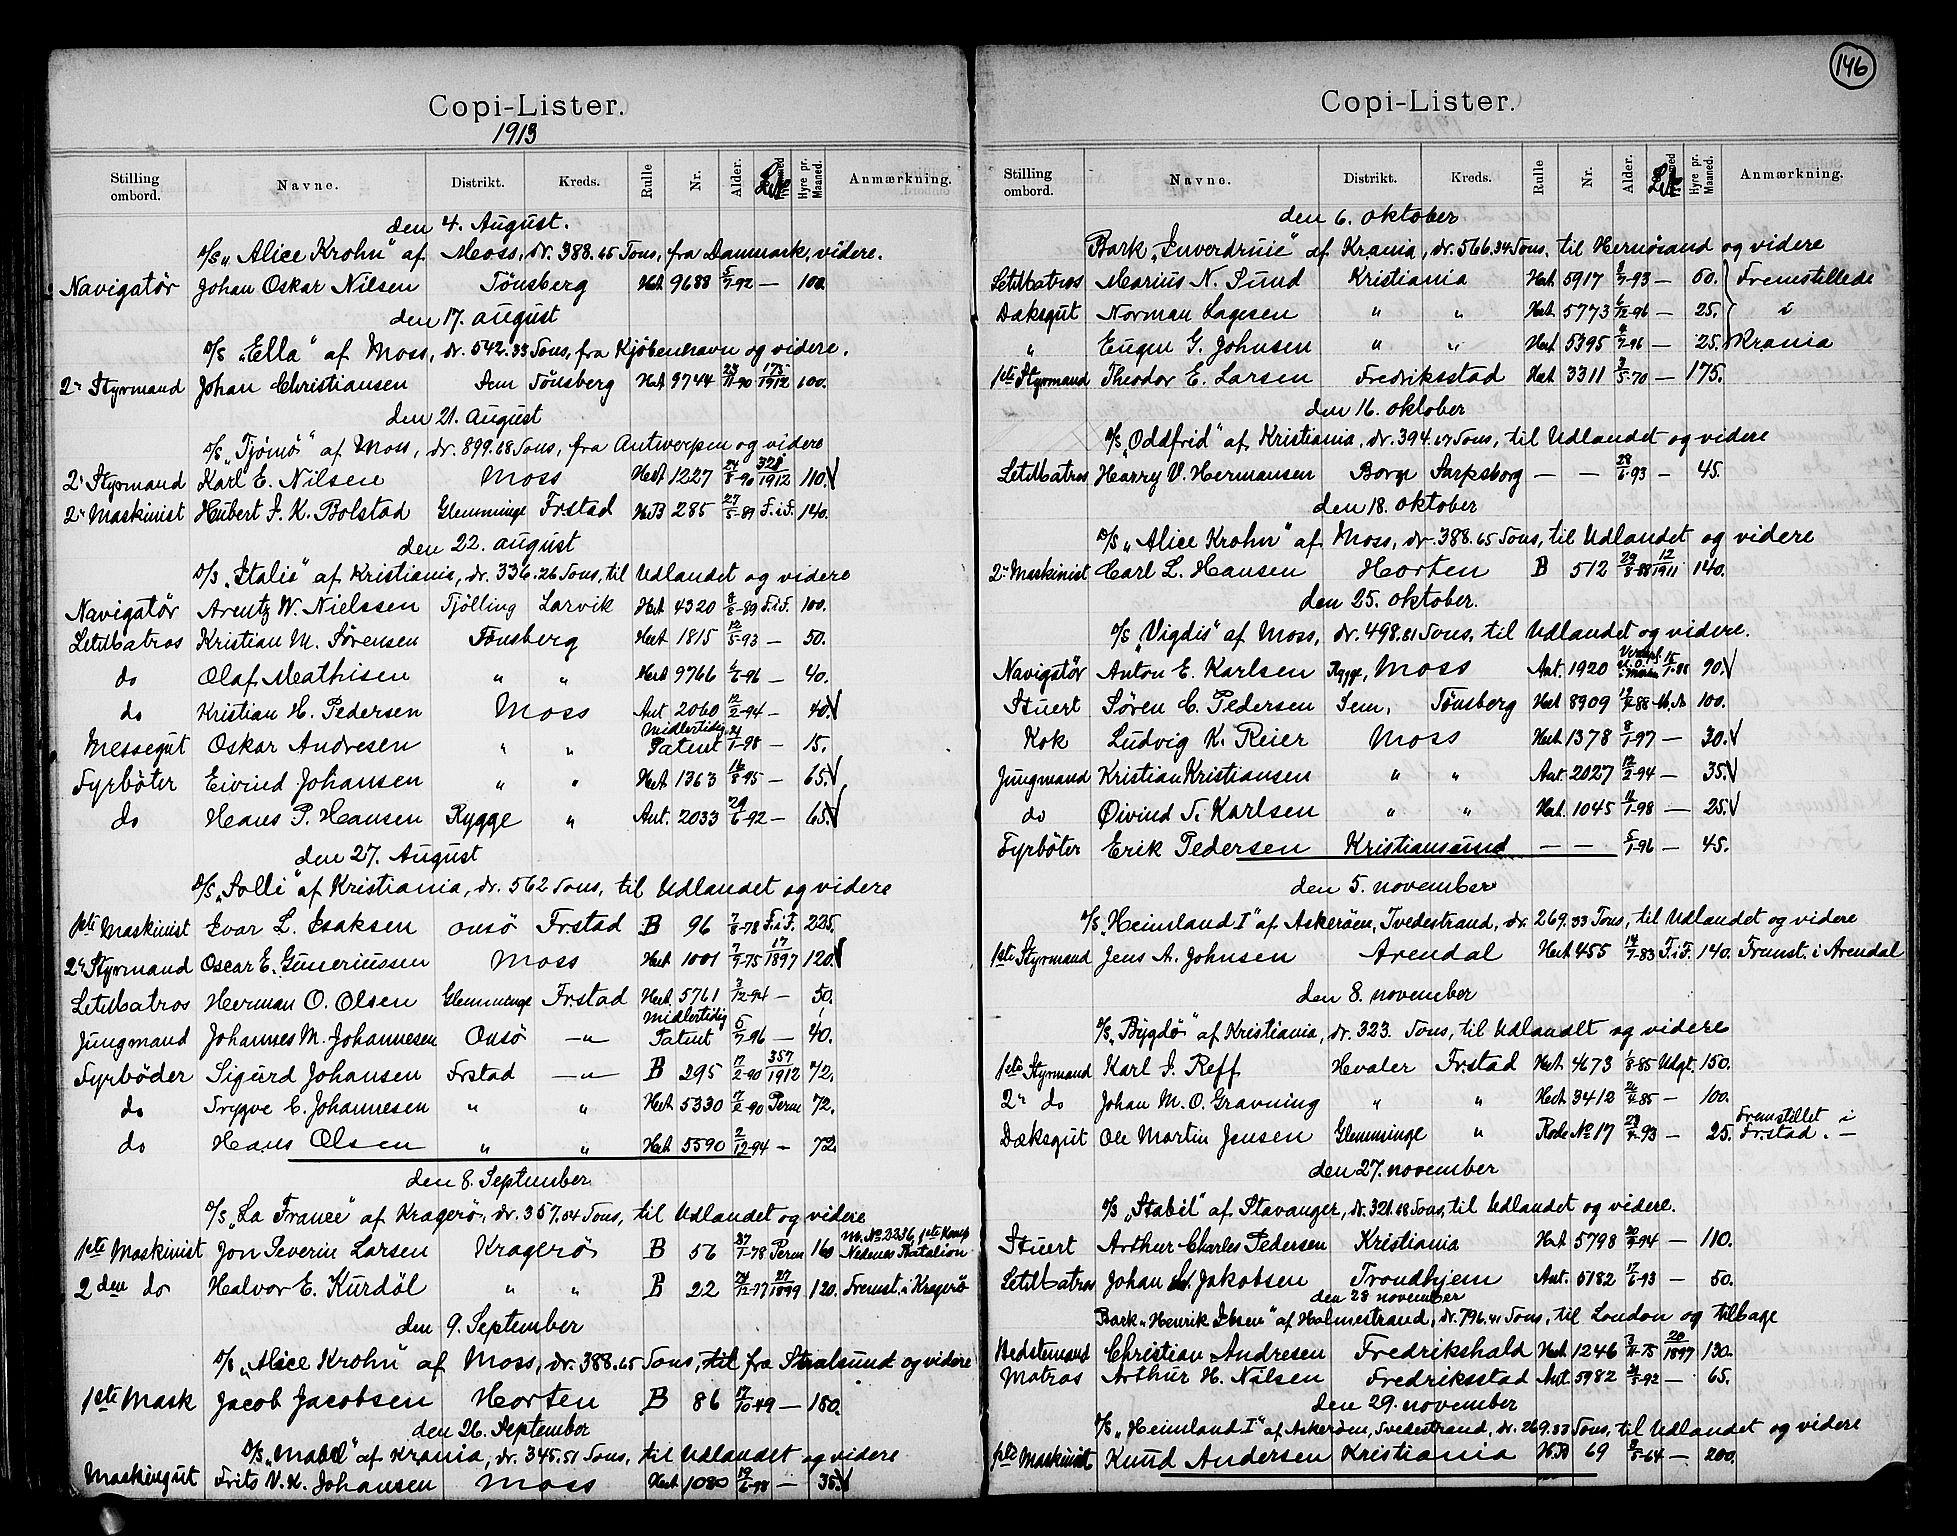 Copi-Lister.
1913
Stilling ombord. Navne. Distrikt. Kreds. Rulle Nr. Alder. Hyre pr. Maaned. Anmærkning.
den 4. August.
D/S „Alice Krohn" af Moss, dr. 388.65 Tons, fra Danmark, videre.
Navigatør Johan Oskar Nilsen Tönsberg Hvt 9688 5/7-92 — 100.
den 17. august
D/S „Ella" af Moss, dr. 542.33 Tons, fra Kjøbenhavn og videre.
2n Styrmand Johan Christiansen Sem Tönsberg Hvt 9744 23/11-90 175/1912 100.
den 21. August
D/S „Tjømø" af Moss, dr. 899.68 Tons, fra Antwerpen og videre
2n Styrmand Karl E. Nilsen Moss Hvt 1227 24/8-90 328/1912 110.
2n Maskinist Hubert J. K. Bolstad Glemminge Frstad H.B 285 27/5-89 F.i.F. 140.
den 22. august
D/S „Italia" af Kristiania, dr. 336.26 Tons, til Udlandet og videre
Navigatør Arentz W. Nielssen Tjölling Larvik Hvt 4320 8/8-89 F.i.F. 100.
LetMatros Kristian M. Sørensen Tönsberg Hvt 1815 12/5-93 — 50.
do Olaf Mathisen " " Hvt 9766 6/6-96 — 40.
do Kristian H. Pedersen Moss Ant. 2060 12/2-94 — 40.
Messegut Oskar Andresen " " Midlertidig Patent 21/1-98 — 15.
Fyrbøter Eivind Johansen " " Hvt 1363 16/8-95 — 65.
do Hans P. Hansen Rygge " Ant. 2033 29/6-92 — 65.
den 27. August
D/S „Solli" af Kristiania, dr. 562 Tons, til Udlandet og videre
1ste Maskinist Ivar L. Isaksen Onsö Frstad B 96 7/8-78 F.i.F. 225.
2n Styrmand Oscar E. Guneriussen Moss Hvt 1001 7/9-75 17/1897 120.
LetMatros Herman O. Olsen Glemminge Frstad Hvt. 5761 3/12-94 — 50.
Jungmand Johannes M. Johannesen Onsö —"— Midlertidig Patent 5/7-96 — 40.
Fyrbøder Sigurd Johansen Frstad —"— B 295 17/2-90 357/1912 72.
do Trygve C. Johannesen " " Hvt 5330 7/2-90 Perm 72.
do Hans Olsen " " Hvt. 5590 2/12-94 — 72.
den 8. September
D/S „La France" af Kragerø, dr. 357.04 Tons, til Udlandet og videre
1ste Maskinist Jon Severin Larsen Kragerö B 56 27/1-78 Perm 160 M.No 2236, 1ste Komp Nedenes Batalion
2den do Halvor E. Kurdöl " " B 22 24/12-77 27/1899 120. Fremst. i Kragerö
den 9. September
D/S „Alice Krohn" af Moss, dr. 388.65 Tons, til fra Stralsund og videre
1ste Mask Jacob Jacobsen Horten B 86 17/10-49 — 180.
den 26. September
D/S „Mabel" af Krania, dr. 345.51 Tons, til Udlandet og videre
Maskingut Frits V. K. Johansen Moss Hvt 1080 19/6-98 — 35.
146
Copi-Lister.
Stilling ombord. Navne. Distrikt. Kreds. Rulle Nr. Alder. Hyre pr. Maaned. Anmærkning.
den 6. oktober
Bark „Inverdruie" af Krania, dr. 566.34 Tons. til Hernösand og videre
LetMatros Marius N. Sund Kristiania Hvt. 5917 8/7-93 — 60. Fremstillede
Dæksgut Norman Lagesen " " Hvt. 5773 6/12-96 — 25. i
" Eugen G. Johnsen " " Hvt. 5395 4/7-96 — 25. Krania
1ste Styrmand Theodor E. Larsen Fredriksstad Hvt. 3311 3/5-70 — 175.
den 16. oktober
D/S „Oddfrid" af Kristiania, dr. 394.67 Tons, til Udlandet og videre
LetMatros Harry V. Hermansen Borge Sarpsborg — — 28/6-93 — 45.
den 18. oktober
D/S „Alice Krohn" af Moss, dr. 388.65 Tons, til Udlandet og videre
2n Maskinist Carl L. Hansen Horten B 512 29/8-88 12/1911 140.
den 25. oktober.
D/S „Vigdis" af Moss, dr. 498.81 Tons, til Udlandet og videre.
Navigatør Anton E. Karlsen Rygge, Moss Ant. 1920 15/1-86 90.
Stuert Søren C. Pedersen Sem, Tönsberg Hvt 8909 12/4-88 100.
Kok Ludvig K. Reier Moss Hvt. 1378 8/1-97 — 30.
Jungmand Kristian Kristiansen " " Ant. 2027 12/2-94 — 35.
do Øivind T. Karlsen " " Hvt. 1045 11/1-98 — 25.
Fyrböter Erik Pedersen Kristiansund — — 5/1-96 — 45.
den 5. november
D/S „Heimland I" af Askerøen, Tvedestrand, dr. 269.33 Tons, til Udlandet og videre
1ste Styrmand Jens A. Johnsen Arendal Hvt. 455 14/7-83 F.i.F. 140. Fremst. i Arendal
den 8. november
D/S „Bygdö" af Kristiania, dr. 323. Tons, til Udlandt og videre
1ste Styrmand Karl J. Reff Hvaler Frstad Hvt. 4673 1/8-85 Udgt. 150.
2n do Johan M. O. Gravning " " Hvt. 3412 21/4-85 — 100.
Dæksgut Ole Martin Jensen Glemminge " Rode No 17 23/7-93 — 25. Fremstillet i Frstad. —
den 27. november
D/S „Stabil" af Stavanger, dr. 321.68 Tons, til Udlandet og videre.
Stuert Arthur Charles Pedersen Kristiania Hvt. 5798 30/9-94 — 110.
LetMatros Johan Jakobsen Trondhjem Ant. 5182 17/6-93 — 50.
den 28 november
Bark „Henrik Ibsen" af Holmestrand, dr. 796.41 Tons, til London og tilbage
Bedstemand Christian Andresen Fredrikshald Hvt 1246 3/11-75 20/1897 130.
Matros Arthur H. Nilsen Fredriksstad Ant. 5982 21/5-92 — 65.
den 29. november
D/S „Heimland I" af Askerøen, Tvedestrand, dr. 269.33 Tons, til Udlandet og videre
1ste Maskinist Knud Andersen Kristiania H.B 69 8/5-64 — 200.